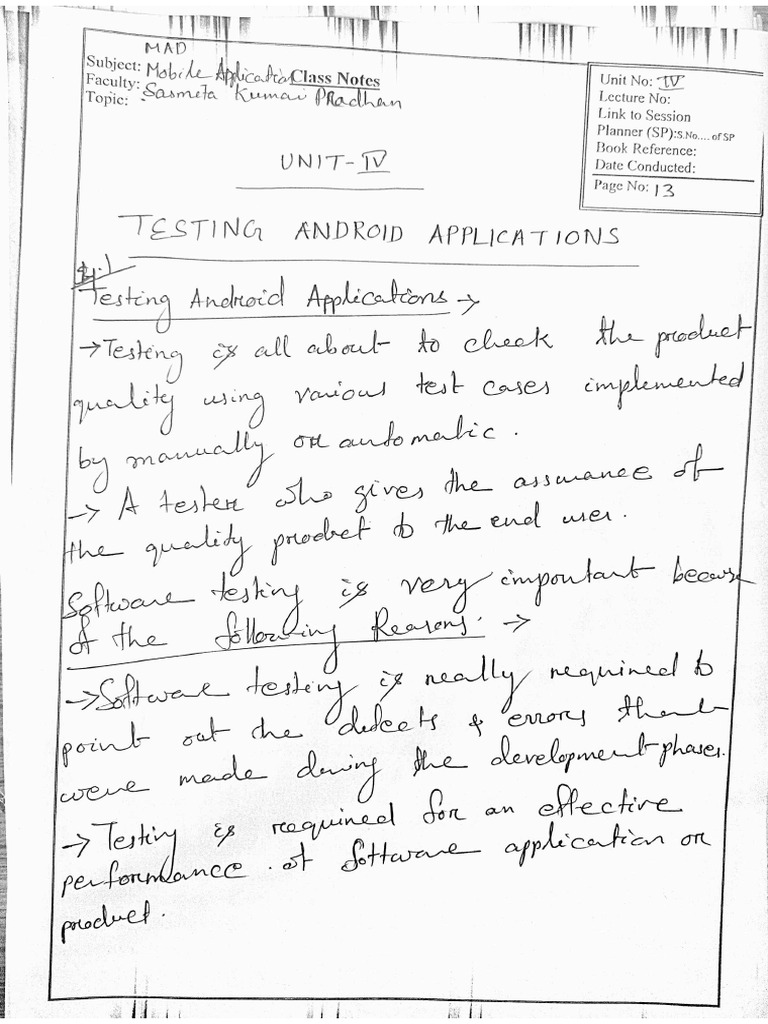 MAD
Subject: Mobile Application Class Notes
Faculty: Sasmita Kumari Pradhan
Topic:
Unit No: IV
Lecture No:
Link to Session
Planner (SP):S.No.... of SP
Book Reference:
Date Conducted:
Page No: 13
UNIT-IV
TESTING ANDROID APPLICATIONS
Testing Android Applications →
→ Testing is all about to check the product
quality using various test cases implemented
by manually or automatic.
→ A tester who gives the assurance of
the quality product to the end user.
Software testing is very important because
of the following Reasons: →
→ Software testing is really required to
point out the defects & errors that
were made during the development phases.
→ Testing is required for an effective
performance of software application or
product.